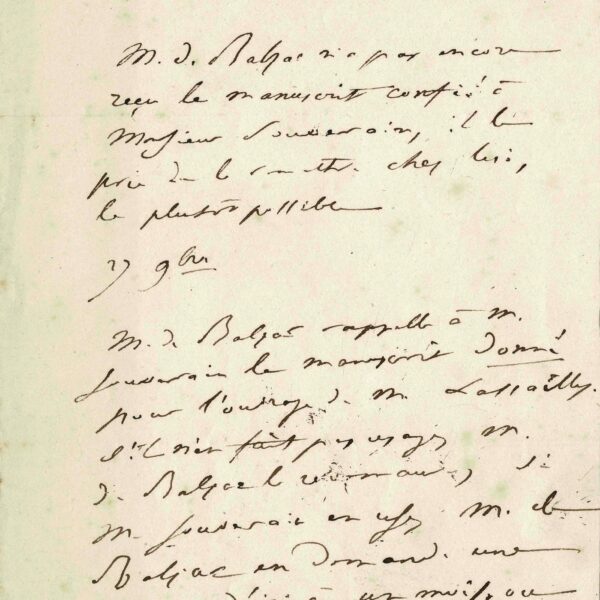 M. de Balzac n'a pas encore
reçu le manuscrit confié à
Monsieur Souverain, il le
prie de le remettre chez lui,
le plustôt possible
27 9bre
M. de Balzac rappelle à M.
Souverain le manuscrit donné
pour l'ouvrage de M. Lassailly.
S'il n'en fait pas usage M.
de Balzac le
M. Souverain en use, M. de
Balzac en demande une
d'ici à un mois, ou